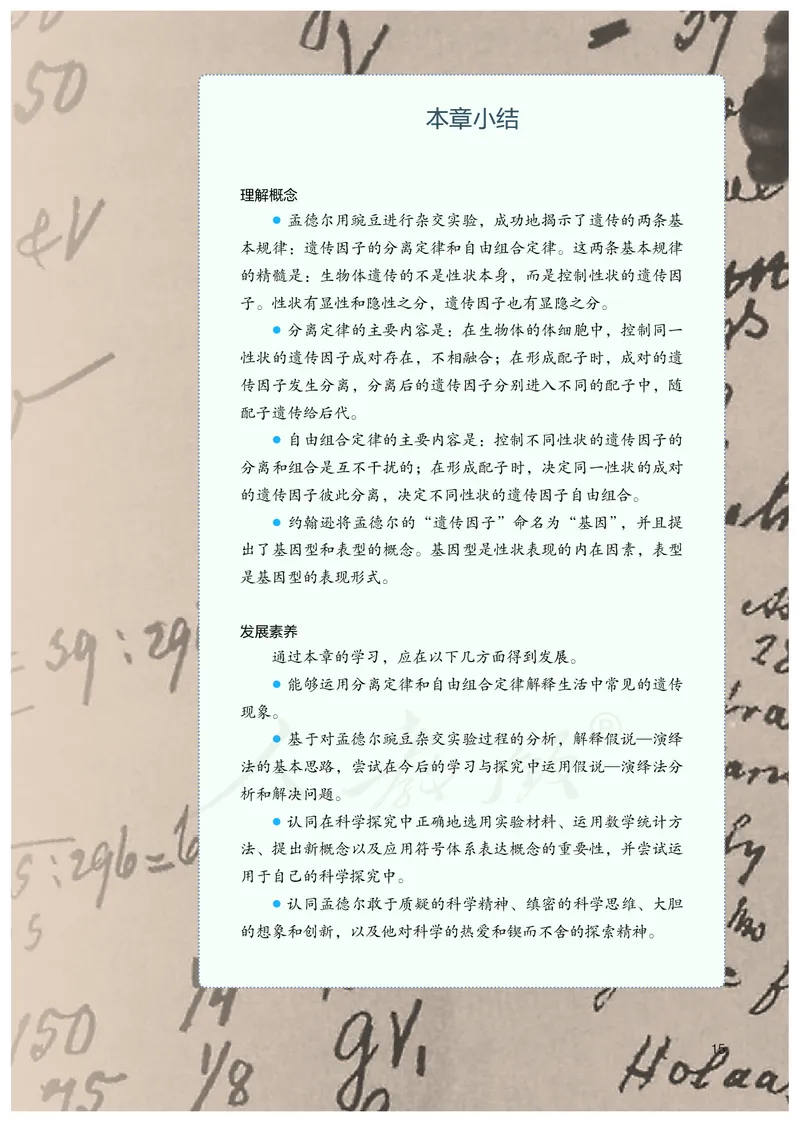 50
= 37
&V
本章小结
理解概念
● 孟德尔用豌豆进行杂交实验，成功地揭示了遗传的两条基
本规律：遗传因子的分离定律和自由组合定律。这两条基本规律
的精髓是：生物体遗传的不是性状本身，而是控制性状的遗传因
子。性状有显性和隐性之分，遗传因子也有显隐之分。
● 分离定律的主要内容是：在生物体的体细胞中，控制同一
性状的遗传因子成对存在，不相融合；在形成配子时，成对的遗
传因子发生分离，分离后的遗传因子分别进入不同的配子中，随
配子遗传给后代。
● 自由组合定律的主要内容是：控制不同性状的遗传因子的
分离和组合是互不干扰的；在形成配子时，决定同一性状的成对
的遗传因子彼此分离，决定不同性状的遗传因子自由组合。
● 约翰逊将孟德尔的“遗传因子”命名为“基因”，并且提
出了基因型和表型的概念。基因型是性状表现的内在因素，表型
是基因型的表现形式。
发展素养
通过本章的学习，应在以下几方面得到发展。
● 能够运用分离定律和自由组合定律解释生活中常见的遗传
现象。
● 基于对孟德尔豌豆杂交实验过程的分析，解释假说—演绎
法的基本思路，尝试在今后的学习与探究中运用假说—演绎法分
析和解决问题。
● 认同在科学探究中正确地选用实验材料、运用数学统计方
法、提出新概念以及应用符号体系表达概念的重要性，并尝试运
用于自己的科学探究中。
● 认同孟德尔敢于质疑的科学精神、缜密的科学思维、大胆
的想象和创新，以及他对科学的热爱和锲而不舍的探索精神。
人教版®
= 39 : 29
: 296 =
1/4
150
gV1
1/8
75
15